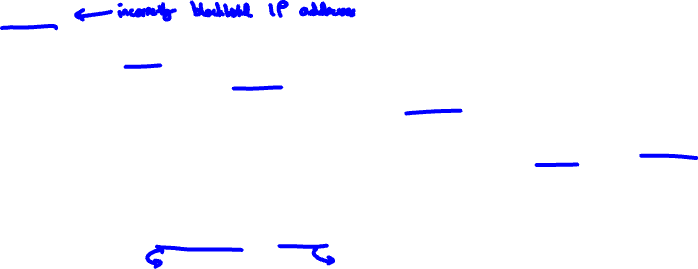 incorrectly blacklisted IP addresses